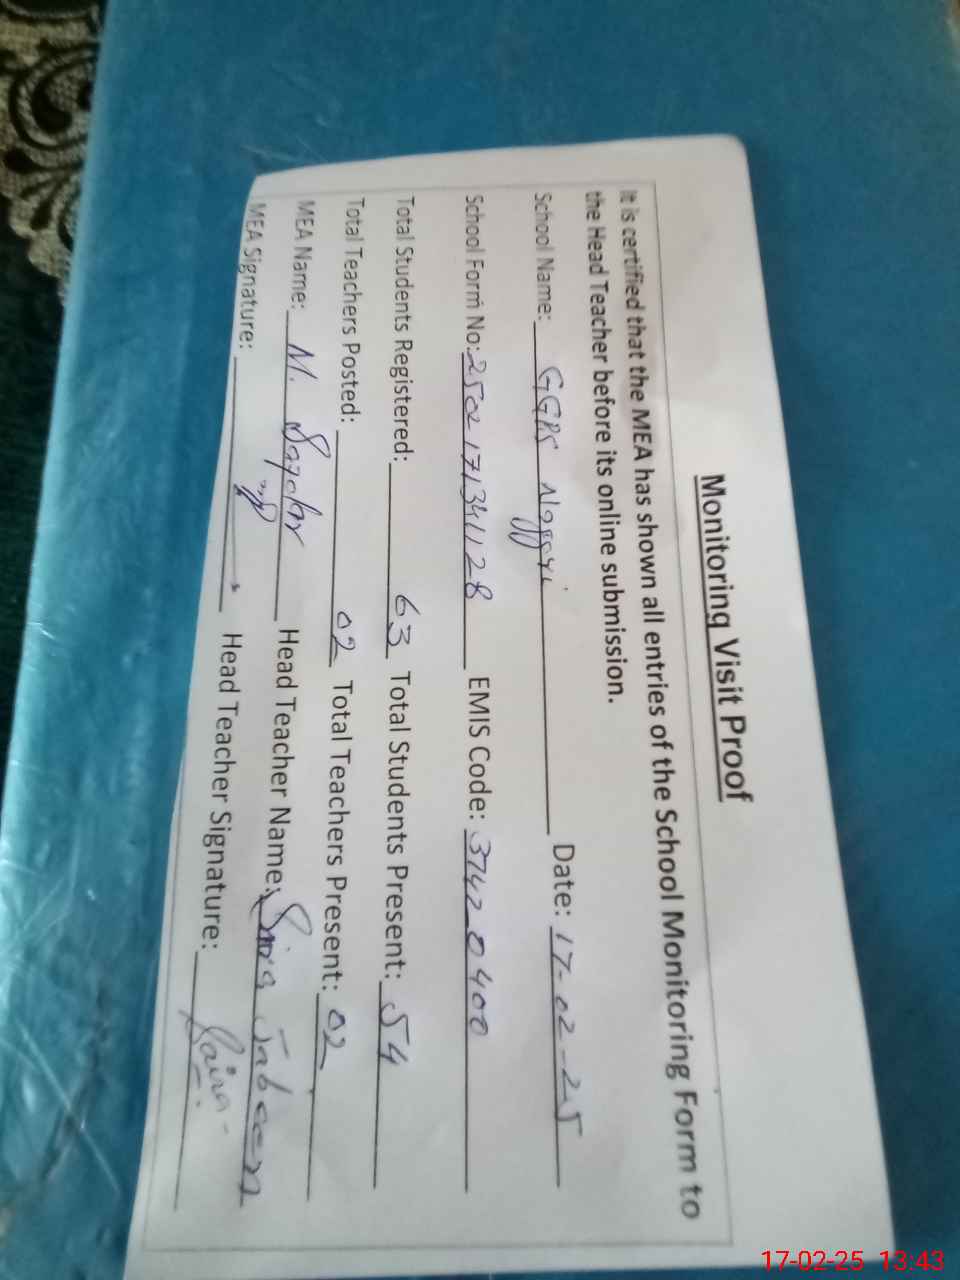 Monitoring Visit Proof
It is certified that the MEA has shown all entries of the School Monitoring Form to
the Head Teacher before its online submission.
School Name: GGPS Date: 17-02-25
School Form No: 250217134128 EMIS Code: 37420400
Total Students Registered: 63 Total Students Present: 54
Total Teachers Posted: 02 Total Teachers Present: 02
MEA Name: M. Head Teacher Name:
MEA Signature: Head Teacher Signature: Saira
17-02-25 13:43